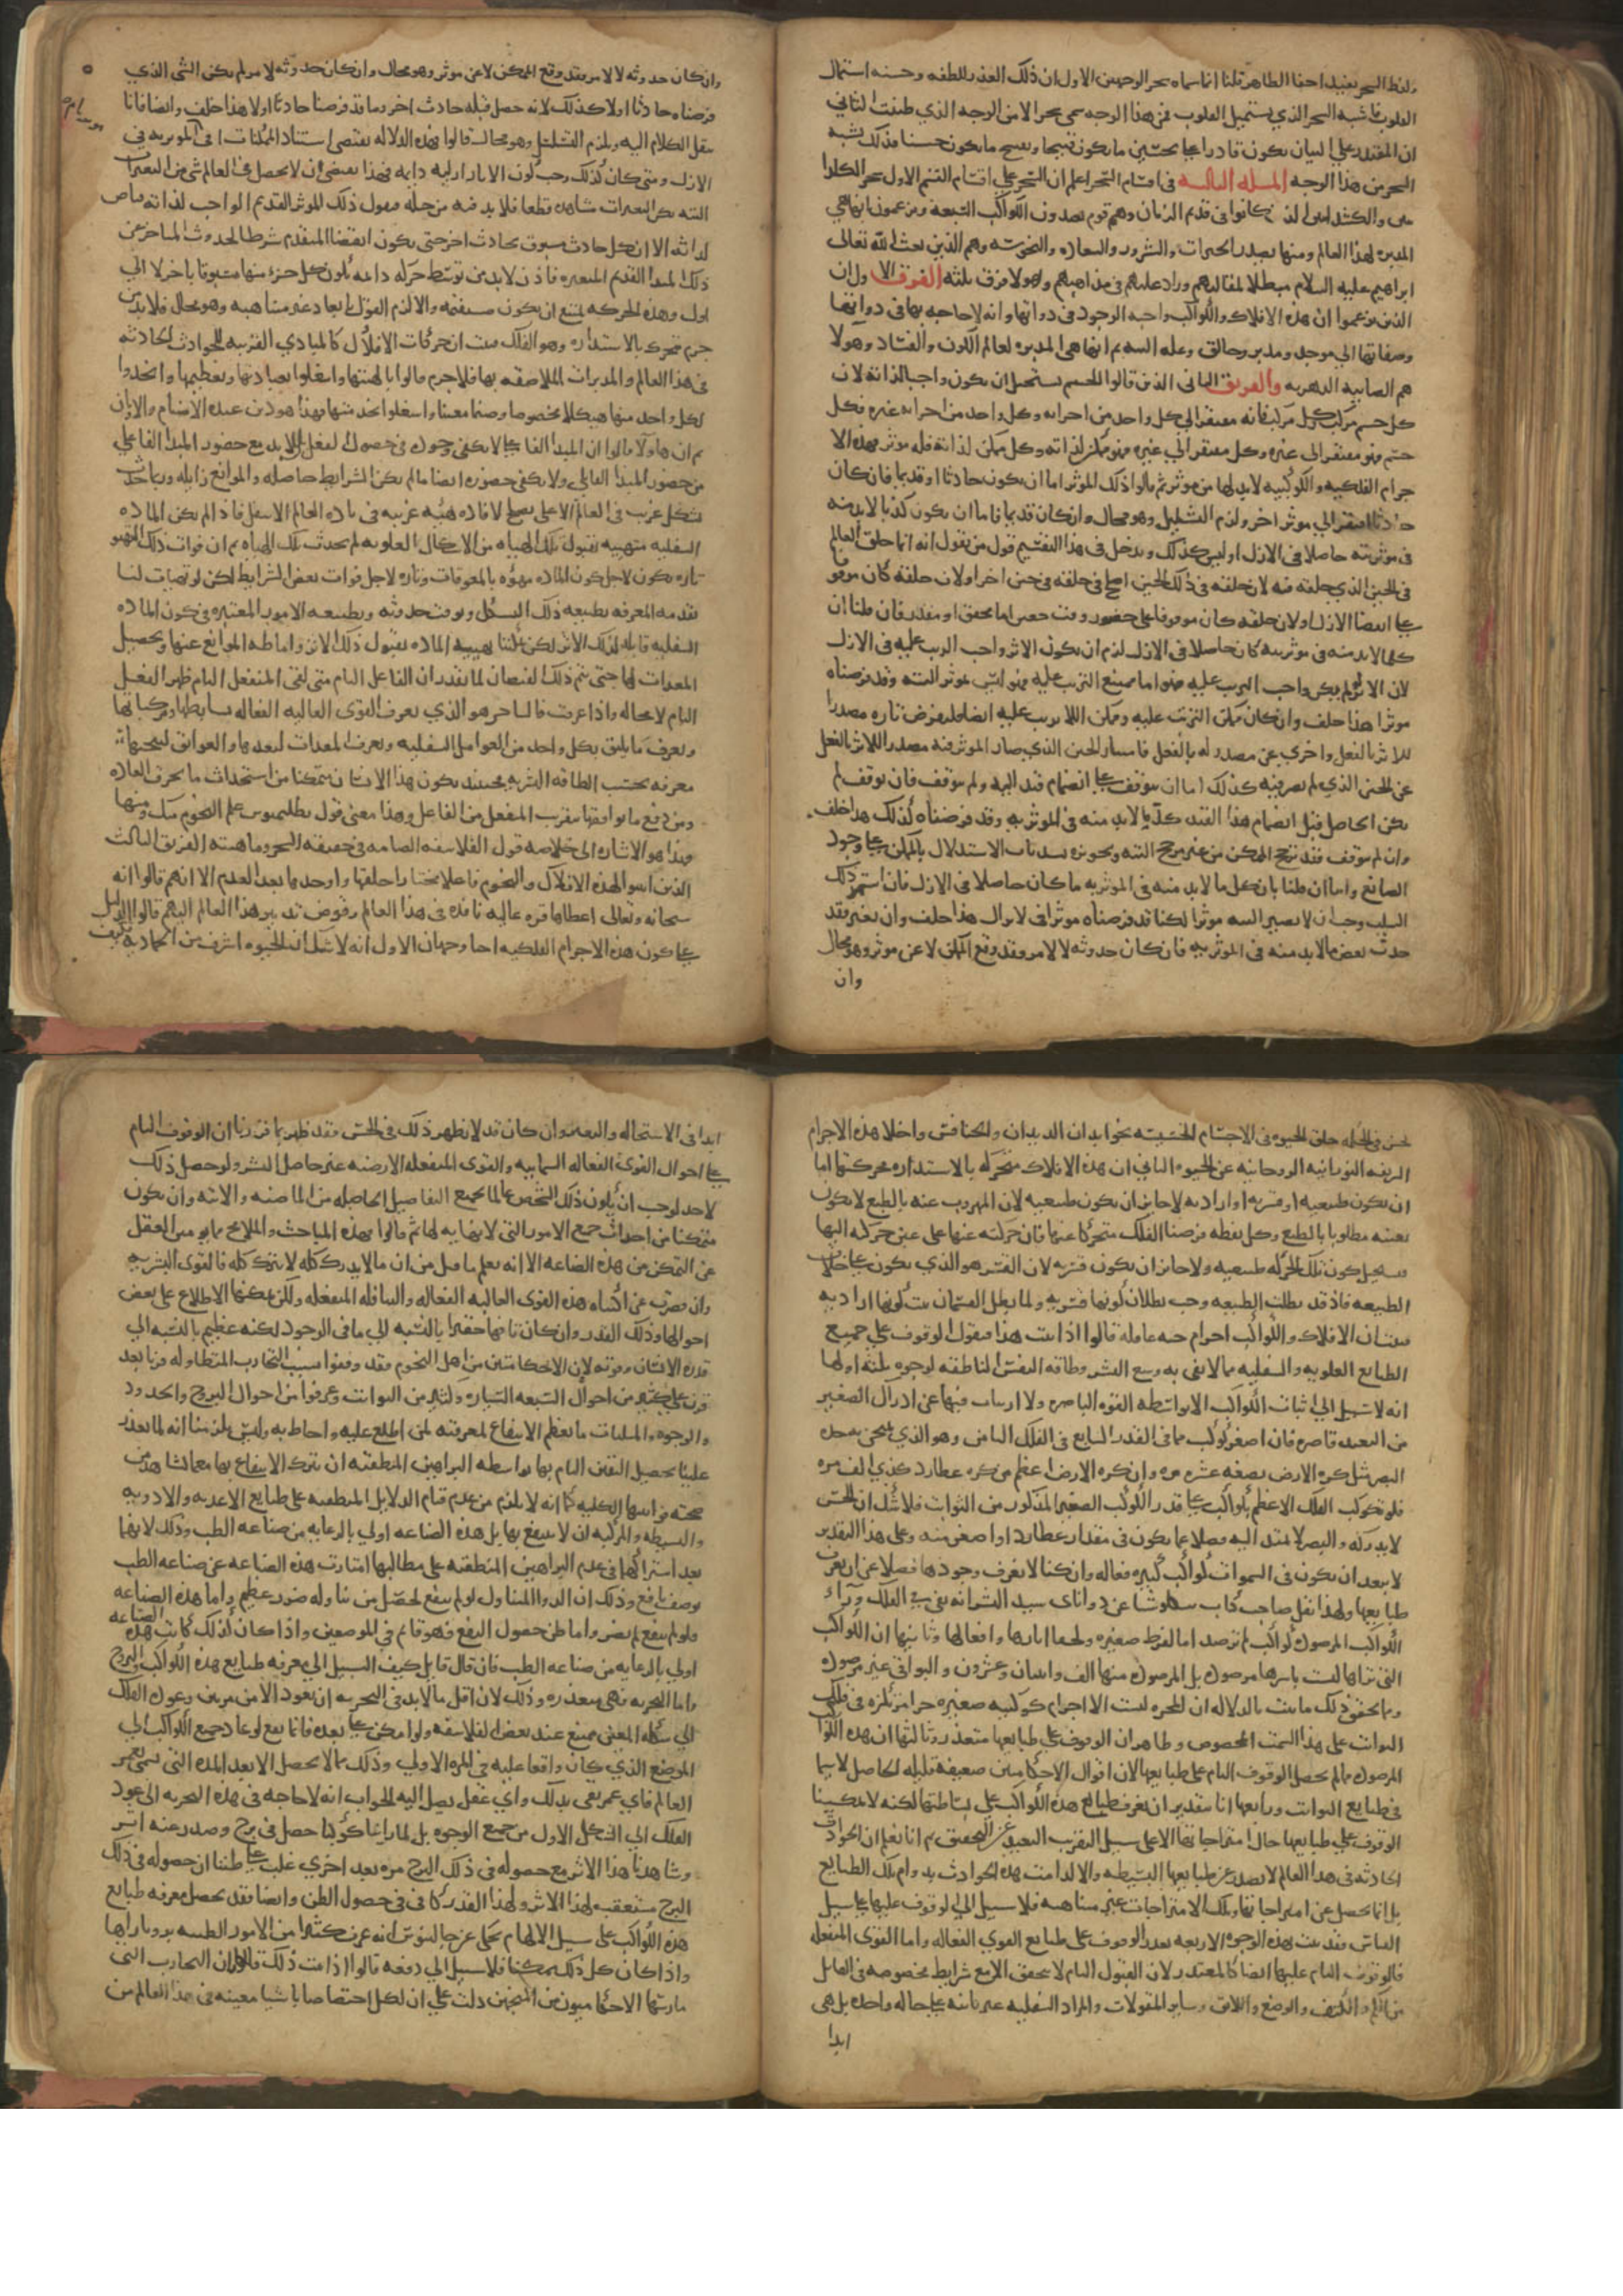 ولفظ السحر يفيد اخفا الظاهر قلنا انما سماه سحرا لوجهين الاول ان ذلك القدر للطفه وحسنه استمال
القلوب فاشبه السحر الذي يستميل القلوب فمن هذا الوجه سمي سحرا لا من الوجه الذي ظننت الثاني
ان المقتدر علي البيان يكون قادرا علي تحسين ما يكون قبيحا وتقبيح ما يكون حسنا فذلك يشبه
السحر من هذا الوجه المسلة الثالثة في اقسام السحر اعلم ان السحر علي اقسام القسم الاول سحر الكلدا
نيين والكشدانيين الذين كانوا في قديم الزمان وهم قوم يعبدون الكواكب السبعه ويزعمون انها هي
المدبره لهذا العالم ومنها يصدر الخيرات والشرور والسعاده والنحوسه وهم الذين بعث الله تعالى
ابراهيم عليه السلام مبطلا لمقالتهم ورادا عليهم في مذاهبهم وهولا فرق ثلثه الفريق الاول
الذين يزعموا ان هذه الافلاك والكواكب واجبه الوجود في ذواتها وانه لا حاجه بها في ذواتها
وصفاتها الي موجد ومدبر وخالق وعله البته ثم انها هي المدبره لعالم الكون والفساد وهولا
هم الصابيه الدهريه والفريق الثاني الذين قالوا الجسم يستحيل ان يكون واجبا لذاته لان
كل جسم مركب وكل مركب فانه مفتقر الي كل واحد من اجزايه وكل واحد من اجزايه غيره فكل
جسم فهو مفتقر الى غيره وكل مفتقر الي غيره فهو ممكن لذاته وكل ممكن لذاته فله موثر فهذه الا
جرام الفلكيه والكوكبيه لابد لها من موثر ثم قالوا ذلك الموثر اما ان يكون حادثا او قديما فان كان
حادثا افتقر الي موثر اخر ولزم التسلسل وهو محال وان كان قديما فاما ان يكون كل ما لا بد منه
في موثريته حاصلا في الازل او ليس كذلك ويدخل في هذا التقسيم قول من يقول انه انما خلق العالم
في الحين الذي خلقه فيه لان خلقه في ذلك الحين اصلح من خلقه في حين اخر او لان خلقه كان موقو
فا علي انقضا الازل او لان خلقه كان موقوفا علي حضور وقت معين اما محقق او مقدر فان قلنا ان
كل ما لابد منه في موثريته كان حاصلا في الازل لزم ان يكون الاثر واجب الترتب عليه في الازل
لان الاثر لو لم يكن واجب الترتب عليه فهو اما ممتنع الترتب عليه فهو ليس بموثر البته وقد فرضناه
موثرا هذا خلف وان كان ممكن الترتب عليه وممكن اللا ترتب عليه ايضا فلنفرض تاره مصدرا
للاثر بالفعل واخري غير مصدر له بالفعل فامتياز الحين الذي صار الموثر فيه مصدرا للاثر بالفعل
عن الحين الذي لم يصر فيه كذلك اما ان يتوقف علي انضمام قيد اليه او لم يتوقف فان توقف لم
يكن الحاصل قبل انضمام هذا القيد كل ما لابد منه في الموثريه وقد فرضناه كذلك هذا خلف
وان لم يتوقف فقد ترجح الممكن من غير مرجح البته وتجويزه يسد باب الاستدلال بالممكن علي وجود
الصانع واما ان قلنا بان كل ما لابد منه في الموثريه ما كان حاصلا في الازل فان استمر ذلك
السلب وجب ان لا يصير البته موثرا لكنا قد فرضناه موثرا في لا يزال هذا خلف وان تغير فقد
حدث بعض ما لابد منه في الموثريه فان كان حدوثه لا لامر فقد وقع الممكن لا عن موثر وهو محال
وان
وان كان حدوثه لا لامر فقد وقع الممكن لا عن موثر وهو محال وان كان حدوثه لامر لم يكن الشي الذي
فرضناه حادثا اولا كذلك لانه حصل قبله حادث اخر وما قد فرضنا حادثا اولا هذا خلف وايضا فانا
ننقل الكلام اليه ويلزم التسلسل وهو محال قالوا فهذه الدلاله تقتضي استناد الممكنات الي الموثر به في
الازل ومتى كان كذلك وجب كون الاثار ازليه دايمه فهذا يقتضي ان لا يحصل في العالم شي من التغيرات
البته لكن التغيرات مشاهده قطعا فلا بد فيه من حيله فنقول ذلك الموثر القديم الواجب لذاته فياض
لذاته الا ان كل حادث مسبوق بحادث اخر حتى يكون انقضا المتقدم شرطا لحدوث المتاخر عن
ذلك المبدا القديم المتغيره فاذن لابد من توسط حركه دايمه يكون كل جزء منها مسبوقا باخر لا الي
اول وهذه الحركه يمتنع ان يكون مستقيمه والا لزم القول بابعاد غير متناهيه وهو محال فلابد من
جرم متحرك بالاستداره وهو الفلك فثبت ان حركات الافلاك كالمبادي القريبه للحوادث الحادثه
في هذا العالم والمدبرات الملاصقه بها فلا جرم قالوا بالهيتها واشتغلوا بعبادتها وتعظيمها واتخذوا
لكل واحد منها هيكلا مخصوصا وصنما معينا واشتغلوا بخدمتها فهذا هو دين عبده الاصنام والاوثان
ثم ان هاولا قالوا ان المبدا الفاعلي لا يكفي وجوده في حصول الفعل بل لا بد مع حضور المبدا الفاعلي
من حضور المبدا القابلي ولا يكفي حضوره ايضا ما لم يكن الشرايط حاصله والموانع زايله وربما حدث
شكل غريب في العالم الاعلى يصلح لافاده هيئه غريبه في ماده العالم الاسفل فاذا لم يكن الماده
السفليه متهييه لقبول تلك الهيئه من الاشكال العلويه لم يحدث تلك الهيئه ثم ان فوات ذلك التهيو
تاره يكون لاجل كون الماده ممنوه بالمعوقات وتاره لاجل فوات بعض الشرايط لكن لو تهيات لنا
تقدمه المعرفه بطبيعه ذلك الشكل وبوقت حدوثه وبطبيعه الامور المعتبره في كون الماده
السفليه قابله لذلك الاثر لكن يمكننا تهييه الماده لقبول ذلك الاثر واماطه الموانع عنها وتحصيل
المعدات لها حتى يتم ذلك الفيضان لما تقدر ان الفاعل التام متى لقي المنفعل التام ظهر الفعل
التام لا محاله واذا عرفت فالساحر هو الذي يعرف القوى العاليه الفعاله بسايطها ومركباتها
ويعرف ما يليق بكل واحد من العوامل السفليه ويعرف المعدات ليعدها والعوايق لينحيها
معرفه بحسب الطاقه البشريه فحينئذ يكون هذا الانسان متمكنا من استحداث ما يخرق العاده
ومن دفع ما يوافقها بتقريب المنفعل من الفاعل وهذا معنى قول بطلميوس علم النجوم منك ومنها
فهذا هو الاشاره الى خلاصه قول الفلاسفه الصابيه في حقيقه السحر وماهيته الفريق الثالث
الذين اثبتوا لهذه الافلاك والنجوم فاعلا مختارا خلقها واوجدها بعد العدم الا انهم قالوا انه
سبحانه وتعالى اعطاها قوه عاليه نافذه في هذا العالم وفوض تدبير هذا العالم اليهم قالوا الدليل
علي كون هذه الاجرام الفلكيه احيا وجهان الاول انه لا شك ان الحيوه اشرف من الجماديه فكيف
يحسن في الحكمه خلق الحيوه في الاجسام الخسيسه نحو ابدان الديدان والخنافس واخلا هذه الاجرام
الشريفه النورانيه الروحانيه عن الحيوه الثاني ان هذه الافلاك متحركه بالاستداره فحركتها اما
ان يكون طبيعيه او قسريه او اراديه لا جايز ان يكون طبيعيه لان المهروب عنه بالطبع لا يكون
بعينه مطلوبا بالطبع وكل نقطه فرضنا الفلك متحركا عنها فان حركته عنها على عين حركته اليها
فيستحيل كون تلك الحركه طبيعيه ولا جايز ان يكون قسريه لان القسر هو الذي يكون علي خلاف
الطبيعه فاذ قد بطلت الطبيعه وجب بطلان كونها قسريه ولما بطل القسمان ثبت كونها اراديه
فثبت ان الافلاك والكواكب اجرام حيه عاقله قالوا اذا ثبت هذا فنقول الوقوف علي جميع
الطبايع العلويه والسفليه مما لا يفي به وسع البشر وطاقه النفس الناطقه لوجوه ثلثه اولها
انه لا سبيل الي اثبات الكواكب الا بواسطه القوه الباصره ولا ارتياب فيها عن ادراك الصغير
من البعيد قاصره فان اصغر كوكب مما في القدر السابع في الفلك الثامن وهو الذي يمتحن به حده
البصر مثل كره الارض بضعه عشره مره وان كره الارض اعظم من كره عطارد كذي الف مره
فلو تكوكب الفلك الاعظم بكواكب علي قدر الكوكب الصغير المذكور من الثوابت فلا شك ان الحس
لا يدركه والبصر لا يمتد اليه فضلا عما يكون في مقدار عطارد او اصغر منه وعلى هذا التقدير
لا يبعد ان يكون في السموات كواكب كثيره فعاله وان كنا لا نعرف وجودها فضلا عن ان نعرف
طبايعها ولهذا نقل صاحب كتاب عن سيد البشر انه بقي في الفلك ورآء
الكواكب المرصوده كواكب لم ترصد اما لفرط صغرها او لخفا اثارها وافعالها وثانيها ان الكواكب
التي نراها ليست باسرها مرصوده بل المرصوده منها الف واثنان وعشرون والبواقي غير مرصوده
ومما يحقق ذلك ما ثبت بالدلاله ان المجره ليست الا اجرام كوكبيه صغيره جدا مرتكزه في فلك
الثوابت على هذا السمت المخصوص وظاهر ان الوقوف علي طبايعها متعذر وثالثها ان هذه الكواكب
المرصوده مما لم يحصل الوقوف التام على طبايعها لان اقوال الاحكاميين ضعيفه قليله الحاصل لا سيما
في طبايع الثوابت ورابعها انا بتقدير ان نعرف طبايع هذه الكواكب علي بساطتها لكنه لا يمكننا
الوقوف علي طبايعها حال امتزاجاتها الا على سبيل التقريب البعيد عن التحقيق ثم انا نعلم ان الحوادث
الحادثه في هذا العالم لا يصدر عن طبايعها البسيطه والا لدامت هذه الحوادث بدوام تلك الطبايع
بل انما يحصل عن امتزاجاتها وتلك الامتزاجات غير متناهيه فلا سبيل الي الوقوف عليها علي سبيل
القياس فقد ثبت بهذه الوجوه الاربعه تعذر الوقوف على طبايع القوي الفعاله واما القوى المنفعله
فالوقوف التام عليها ايضا كالمتعذر لان القبول التام لا يتحقق الا مع شرايط مخصوصه في القابل
من الكم والكيف والوضع والاين وساير المقولات والمواد السفليه غير ثابته علي حاله واحده بل هي
ابدا
ابدا في الاستحاله والتغير وان كان قد لا يظهر ذلك في الحس فقد ظهر بما قررنا ان الوقوف التام
علي احوال القوى الفعاله السماويه والقوى المنفعله الارضيه غير حاصل للبشر ولو حصل ذلك
لاحد لوجب ان يكون ذلك الشخص عالما بجميع التفاصيل الحاصله من الماضيه والاتيه وان يكون
متمكنا من احداث جميع الامور التي لا نهايه لها ثم قالوا فهذه المباحث والملامح مما يوهن العقل
عن التمكن من هذه الصناعه الا انه نعلم ما قيل من ان ما لا يدرك كله لا يترك كله فالقوى البشريه
وان قصرت عن اكتناه هذه القوى العاليه الفعاله والسافله المنفعله ولكن يمكنها الاطلاع على بعض
احوالها وذلك القدر وان كان تافها حقيرا بالنسبه الي ما في الوجود لكنه عظيم بالنسبه الي
قدره الانسان وقوته لان الاحكاميين من اهل النجوم فقد وقفوا بسبب التجارب المتطاوله قرنا بعد
قرن علي كثير من احوال السبعه السياره وكثير من الثوابت وعرفوا من احوال البروج والحدود
والوجوه والمثلثات ما يعظم الانتفاع لمعرفته لمن اطلع عليه واحاط به وليس يلزمنا انه لما تعذر
علينا تحصيل اليقين التام بها بواسطه البراهين المنطقيه ان نترك الانتفاع بها مع ما نشاهد من
صحه قوانينها الكليه كما انه لا يلزم من عدم قيام الدلايل المنطقيه على طبايع الاغذيه والادويه
والبسيطه والمركبه ان لا ينتفع بها بل هذه الصناعه اولي بالرعايه من صناعه الطب وذلك لانهما
بعد اشتراكهما في عدم البراهين المنطقيه على مطالبها امتازت هذه الصناعه عن صناعه الطب
بوصف نافع وذلك ان الدوا المتناول لو لم ينفع لحصل من تناوله ضرر عظيم واما هذه الصناعه
فلو لم تنفع لم تضر واما ظن حصول النفع فهو قايم في الموضعين واذا كان كذلك كانت هذه الصناعه
اولي بالرعايه من صناعه الطب فان قال قايل كيف السبيل الي معرفه طبايع هذه الكواكب والبروج
واما التجربه فهي متعذره وذلك لان اقل ما لابد في التجربه ان يعود الامر مرتين وعود الفلك
الي شكله المعين ممتنع عند بعض الفلاسفه ولو امكن علي بعده فانما يقع لو عاد جميع الكواكب الي
الموضع الذي كان واقعا عليه في المره الاولي وذلك مما لا يحصل الا بعد المده التي تسمى بعمر
العالم فاي عمر يفي بذلك واي عقل يصل اليه الجواب انه لا حاجه في هذه التجربه الى عود
الفلك الي الشكل الاول من جميع الوجوه بل لما راينا كوكبا حصل في برج وصدر عنه اثر
وشاهدنا هذا الاثر مع حصوله في ذلك البرج مره بعد اخري غلب علي ظننا ان حصوله في ذلك
البرج مستعقب لهذا الاثر وهذا القدر كافي في حصول الظن وايضا فقد يحصل معرفه طبايع
هذه الكواكب على سبيل الالهام يحكي عن جالينوس انه عرف كثيرا من الامور الطبيه برويا راها
واذا كان كل ذلك ممكنا فلا سبيل الي دفعه قالوا اذا ثبت ذلك قالوا ان التجارب التي
مارستها الاحكاميون من المنجمين دلت علي ان لكل اختصاصا باشيا معينه في هذا العالم من